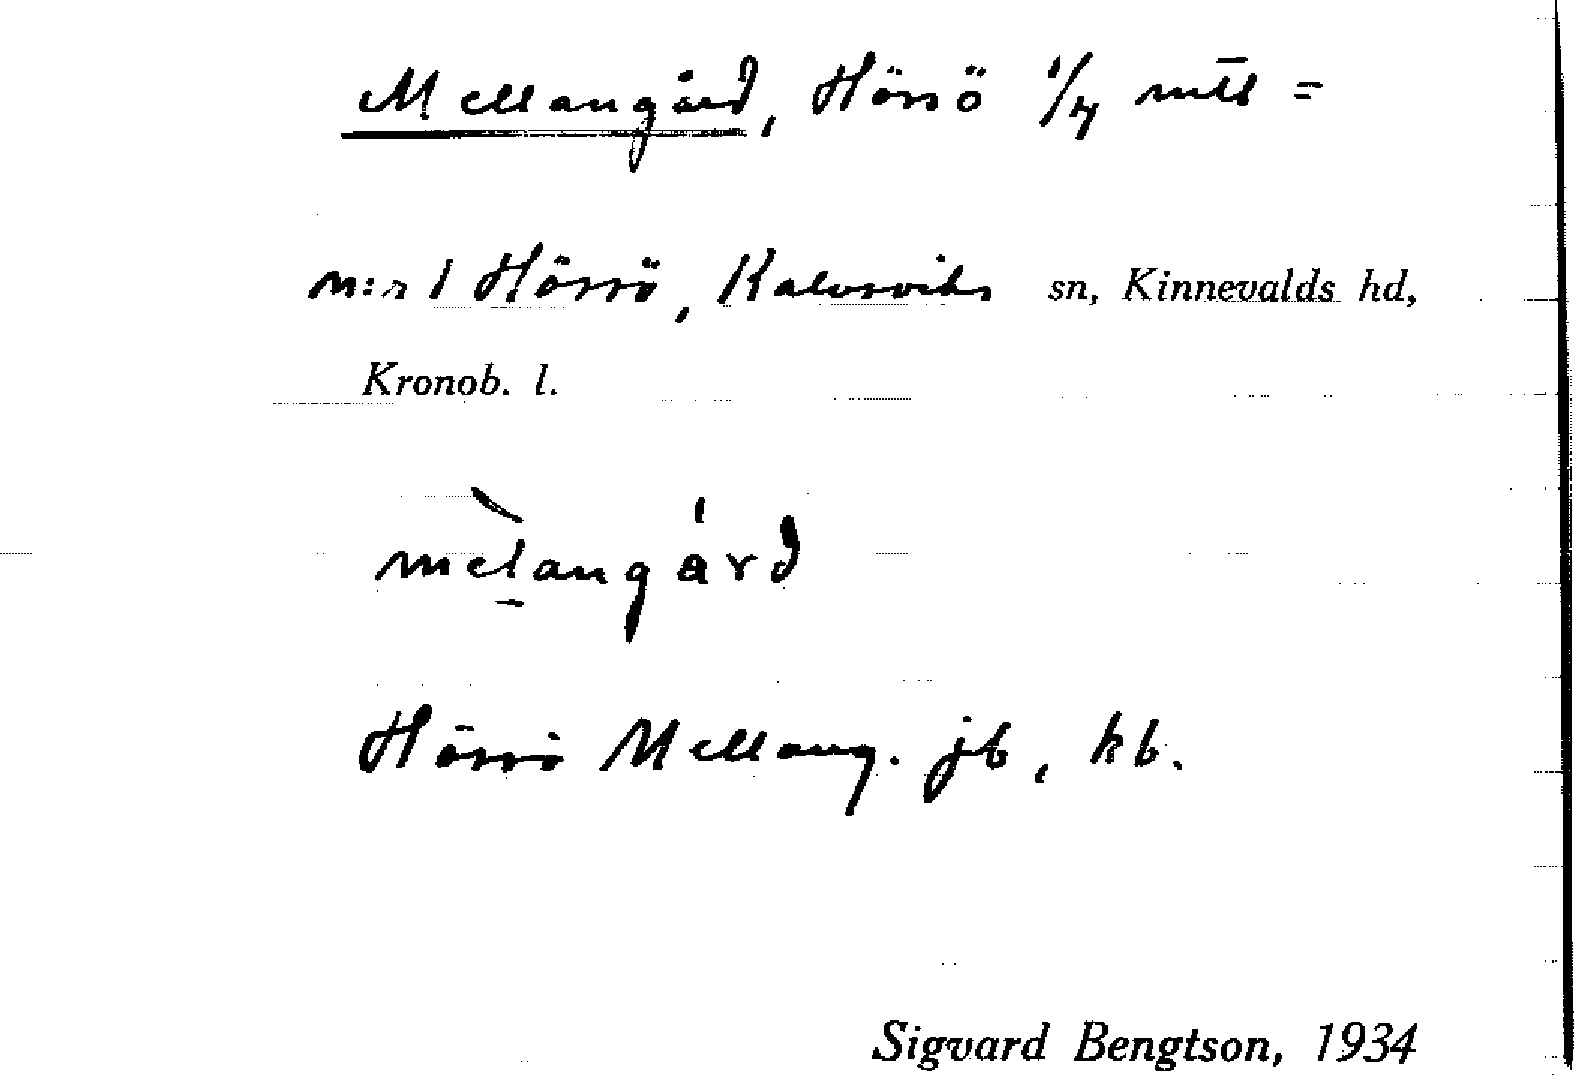 Mellangård, Hössö 1/4 mtl =
n:r 1 Hössö, Kalvsviks sn, Kinnevalds hd,
Kronob. l.
mèlangárd
Hössö Mellang. jb, kb.
Sigvard Bengtson, 1934